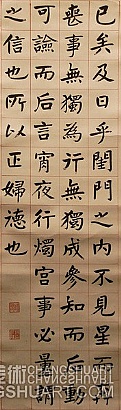 已矣及日乎閨門之内不見星而奔
喪事無獨為行無獨成參知而后動
可而后言宵夜行燭宮事必量謂
之信也所以正婦德也